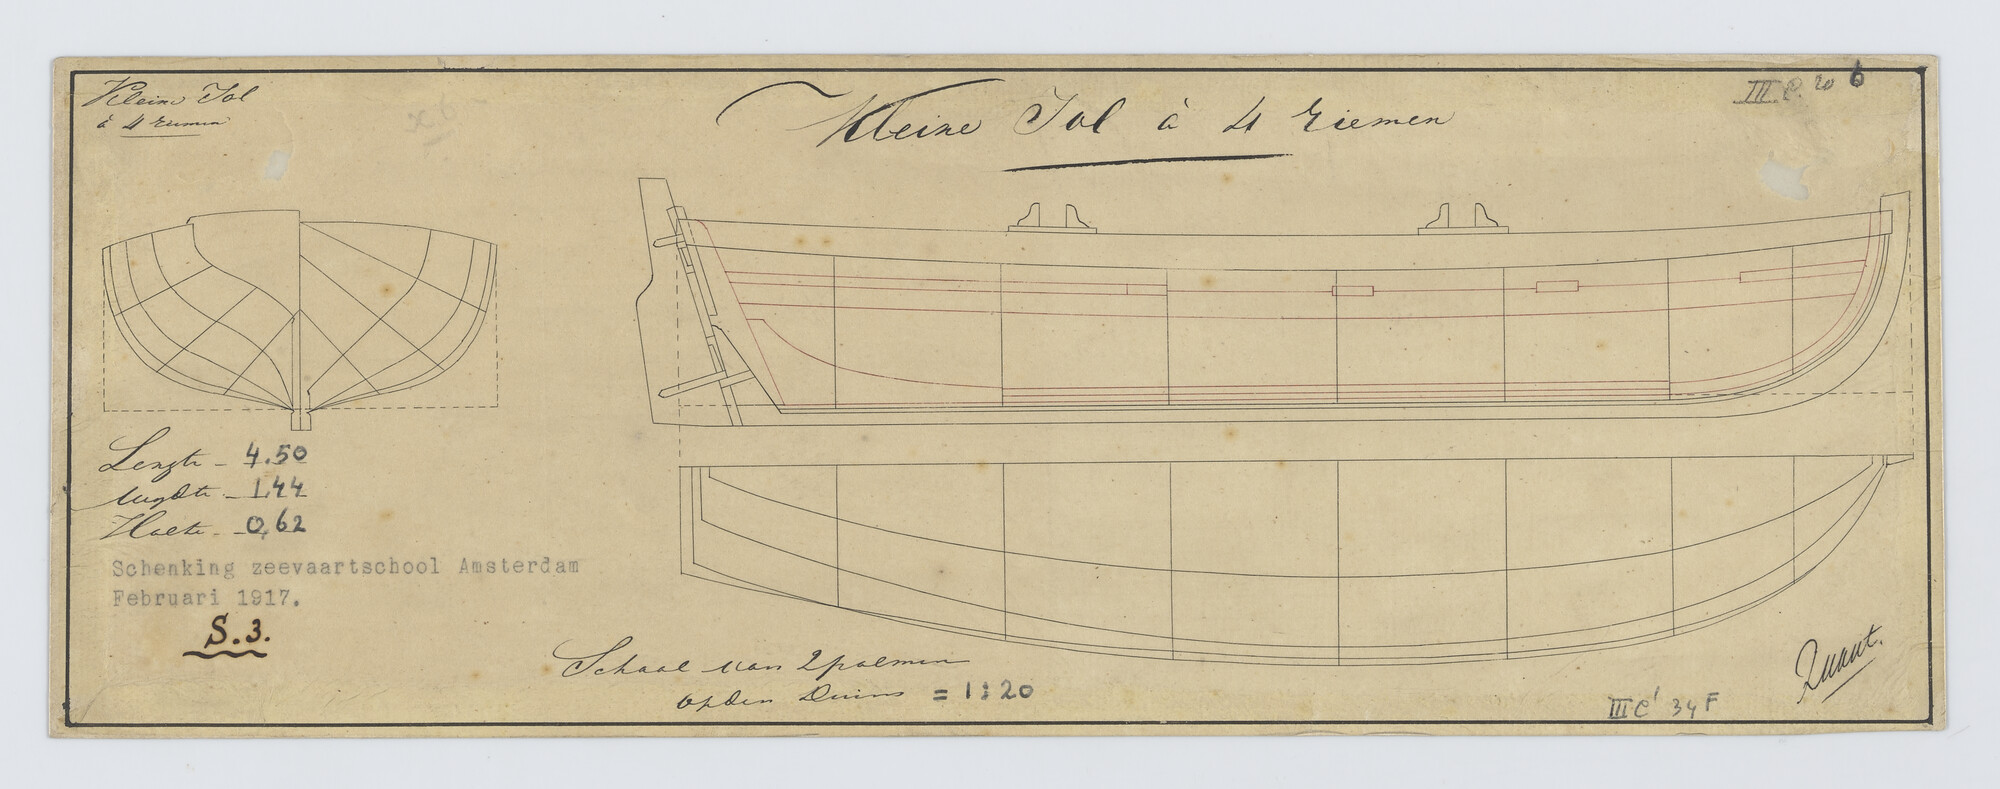 Kleine Jol
à 4 riemen
Kleine Jol à 4 riemen
III C 20 6
Lengte - 4.50
Wydte - 1.44
Holte - 0,62
Schenking zeevaartschool Amsterdam
Februari 1917.
S.3.
Schaal van 2 palmen
op den Duim = 1:20
III C' 34 F